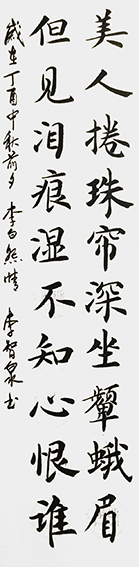 美人捲珠帘深坐颦蛾眉
但见泪痕湿不知心恨谁
岁在丁酉中秋前夕李白怨情李智泉书